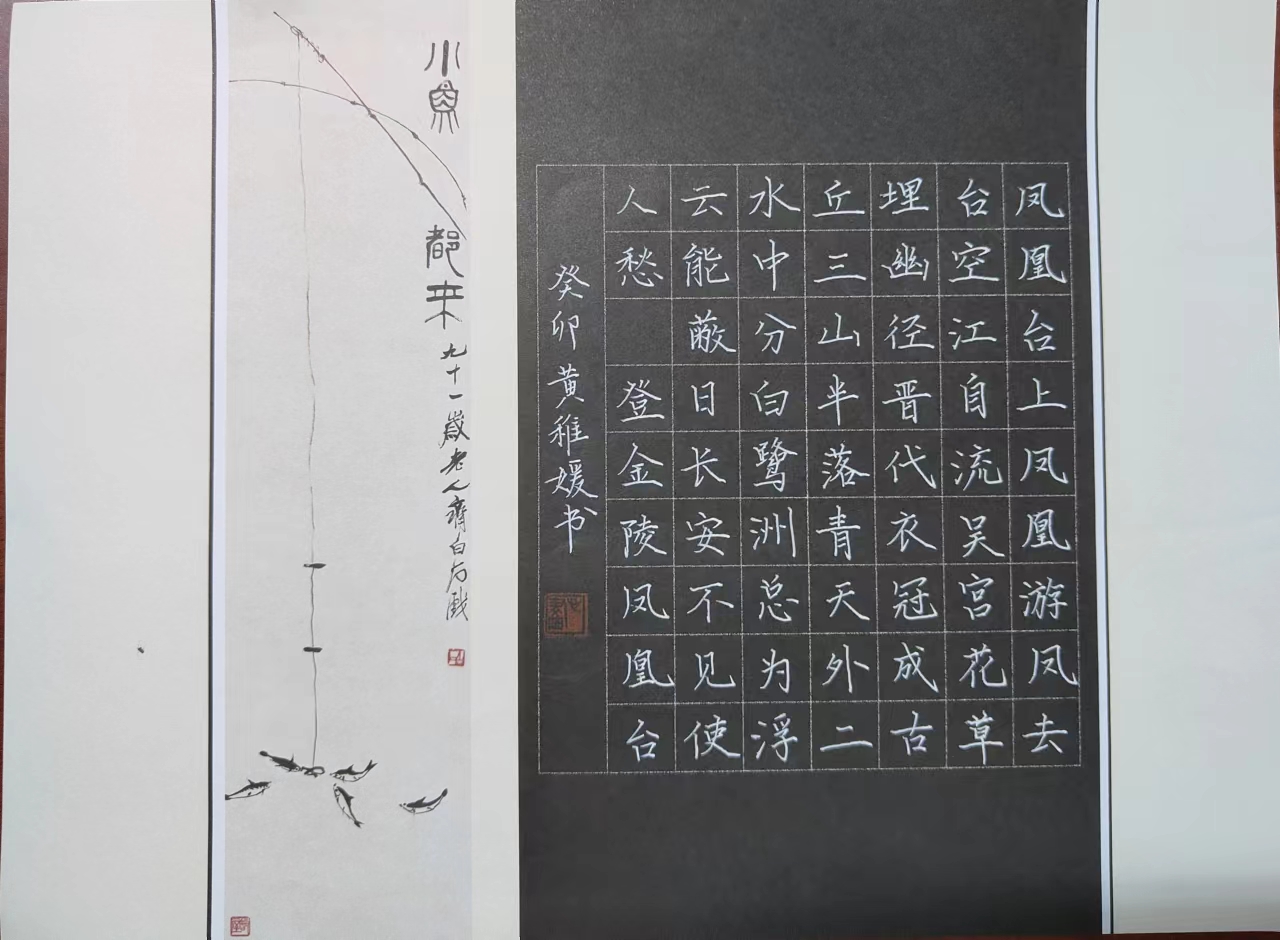 凤凰台上凤凰游凤去
台空江自流吴宫花草
埋幽径晋代衣冠成古
丘三山半落青天外二
水中分白鹭洲总为浮
云能蔽日长安不见使
人愁 登金陵凤凰台
癸卯黄稚媛书
小魚都來
九十一歲老人齊白石戲